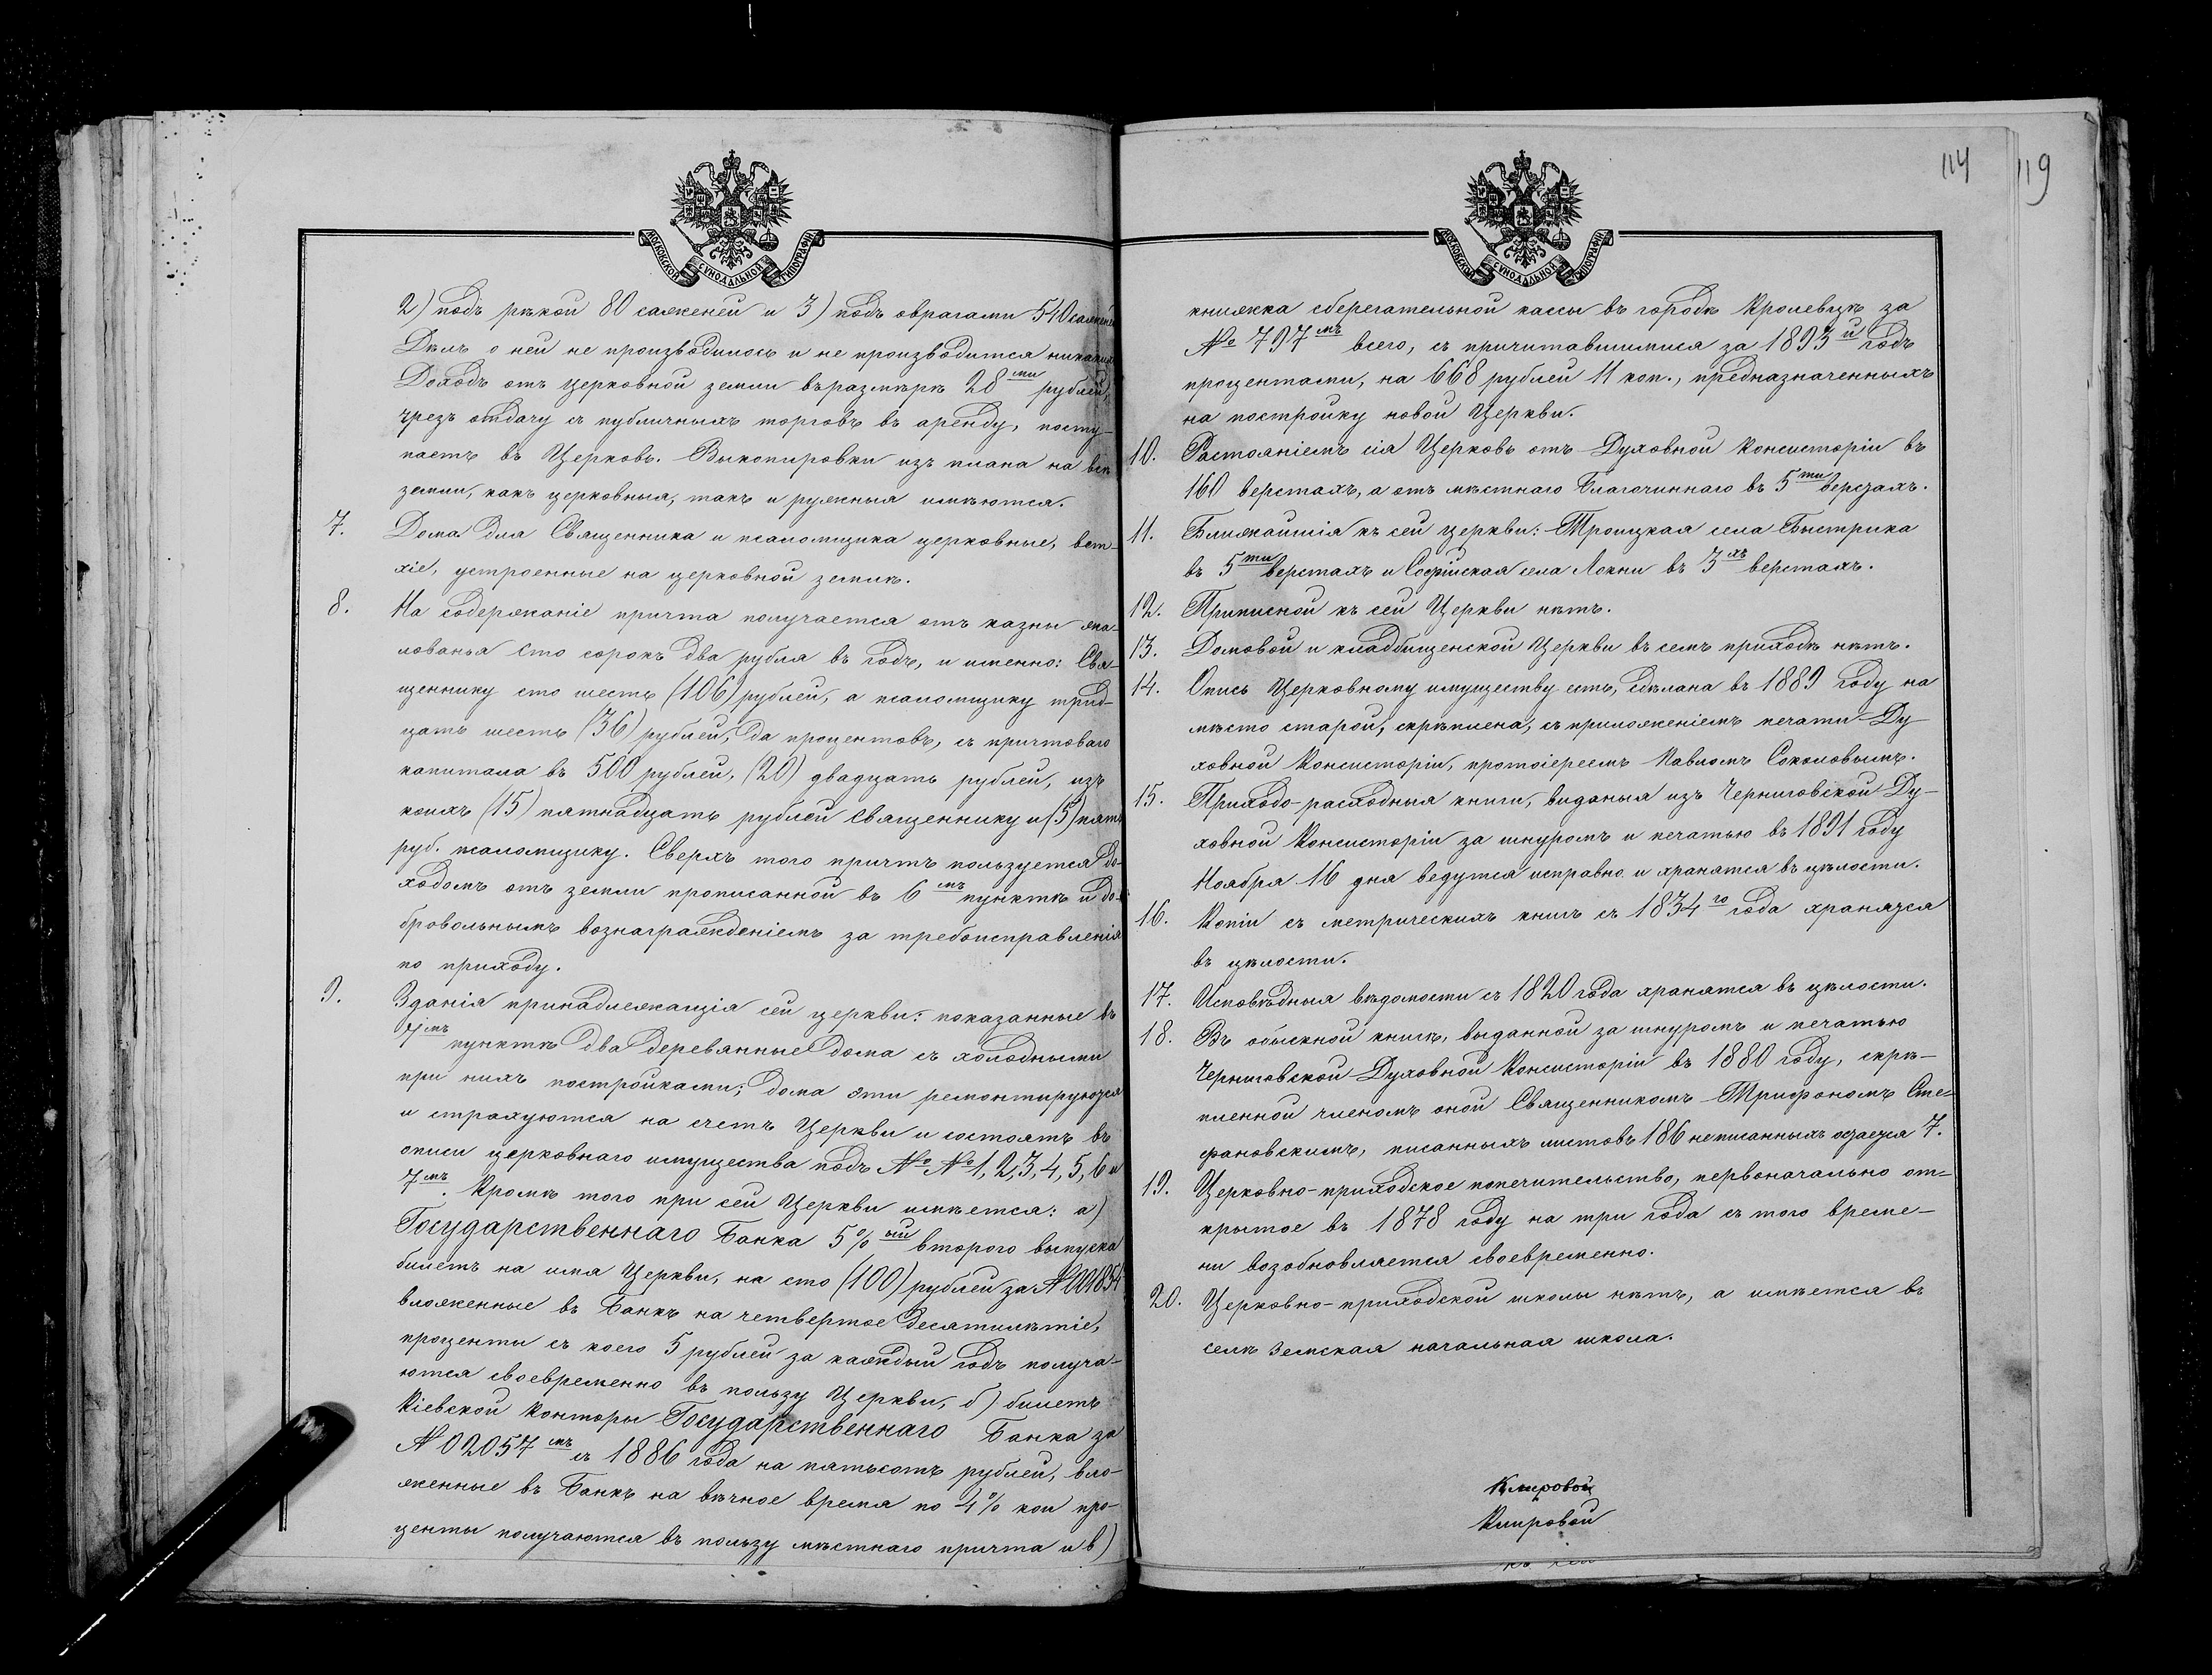 МОСКОВСКОЙ СѴНОДАЛЬНОЙ ТИПОГРАФІИ
2) подъ рѣкой 80 саженей и 3) подъ оврагами 540 саженей
Дѣлъ о ней не производилось и не производится никакихъ
Доходъ отъ церковной земли въ размѣрѣ 28ми рублей,
чрезъ отдачу съ публичныхъ торговъ въ аренду, посту-
паетъ въ Церковь. Выкопировки изъ плана на всѣ
земли, какъ церковныя, такъ и ружныя имѣются.
7. Дома для Священника и псаломщика церковные, вет-
хіе, устроенные на церковной землѣ.
8. На содержаніе причта получается отъ казны жа-
лованья сто сорокъ два рубля въ годъ, и именно: Свя-
щеннику сто шесть (106) рублей, а псаломщику трид-
цать шесть (36) рублей, да процентовъ, съ причтоваго
капитала въ 500 рублей, (20) двадцать рублей, изъ
коихъ (15) пятнадцать рублей священнику и (5) пять
руб. псаломщику. Сверхъ того причтъ пользуется до-
ходомъ отъ земли прописанной въ 6мъ пунктѣ и до-
бровольнымъ вознагражденіемъ за требоисправленія
по приходу.
9. Зданія принадлежащія сей церкви: показанные въ
7мъ пунктѣ два деревянные дома съ холодными
при нихъ постройками; дома эти ремонтируются
и страхуются на счетъ Церкви и состоятъ въ
описи церковнаго имущества подъ №№ 1, 2, 3, 4, 5, 6 и
7мъ. Кромѣ того при сей Церкви имѣется: а)
Государственнаго Банка 5%ый второго выпуска
билетъ на имя Церкви, на сто (100) рублей за №
вложенные въ Банкъ на четвертое десятилѣтіе,
проценты съ коего 5 рублей за каждый годъ получа-
ются своевременно въ пользу Церкви, б) билетъ
Кіевской Конторы Государственнаго Банка за
№ 02057мъ съ 1886 года на пятьсотъ рублей, вло-
женные въ Банкъ на вѣчное время по 4% кои про-
центы получаются въ пользу мѣстнаго причта и в)
114 119
МОСКОВСКОЙ СѴНОДАЛЬНОЙ ТИПОГРАФІИ
книжка сберегательной кассы въ городѣ Кролевцѣ за
№ 797мъ всего, съ причитавшимися за 1893й годъ
процентами, на 668 рублей 11 коп., предназначенныхъ
на постройку новой Церкви.
10. Растояніемъ сія Церковь отъ Духовной Консисторіи въ
160 верстахъ, а отъ мѣстнаго Благочиннаго въ 5ти верстахъ.
11. Ближайшія къ сей церкви: Троицкая села Быстрика
въ 5ти верстахъ и Софійская села Локни въ 3хъ верстахъ.
12. Приписной къ сей Церкви нѣтъ.
13. Домовой и кладбищенской Церкви въ семъ приходѣ нѣтъ.
14. Опись Церковному имуществу есть, сдѣлана въ 1889 году на
мѣсто старой, скрѣплена, съ приложеніемъ печати Ду-
ховной Консисторіи, протоіереемъ Павломъ Соколовымъ.
15. Приходо-расходныя книги, виданыя изъ Черниговской Ду-
ховной Консисторіи за шнуромъ и печатью въ 1891 году
Ноября 16 дня ведутся исправно и хранятся въ цѣлости.
16. Копіи съ метрическихъ книгъ съ 1834го года хранятся
въ цѣлости.
17. Исповѣдныя вѣдомости съ 1820 года хранятся въ цѣлости.
18. Въ обыскной книгѣ, выданной за шнуромъ и печатью
Черниговской Духовной Консисторіи въ 1880 году, скрѣ-
пленной членомъ оной Священникомъ Трифономъ Сте-
фановскимъ, писанныхъ листовъ 186 неписанныхъ остается 7.
19. Церковно-приходское попечительство, первоначально от-
крытое въ 1878 году на три года съ того време-
ни возобновляется своевременно.
20. Церковно-приходской школы нѣтъ, а имѣется въ
селѣ земская начальная школа.
Клировой
Клировой